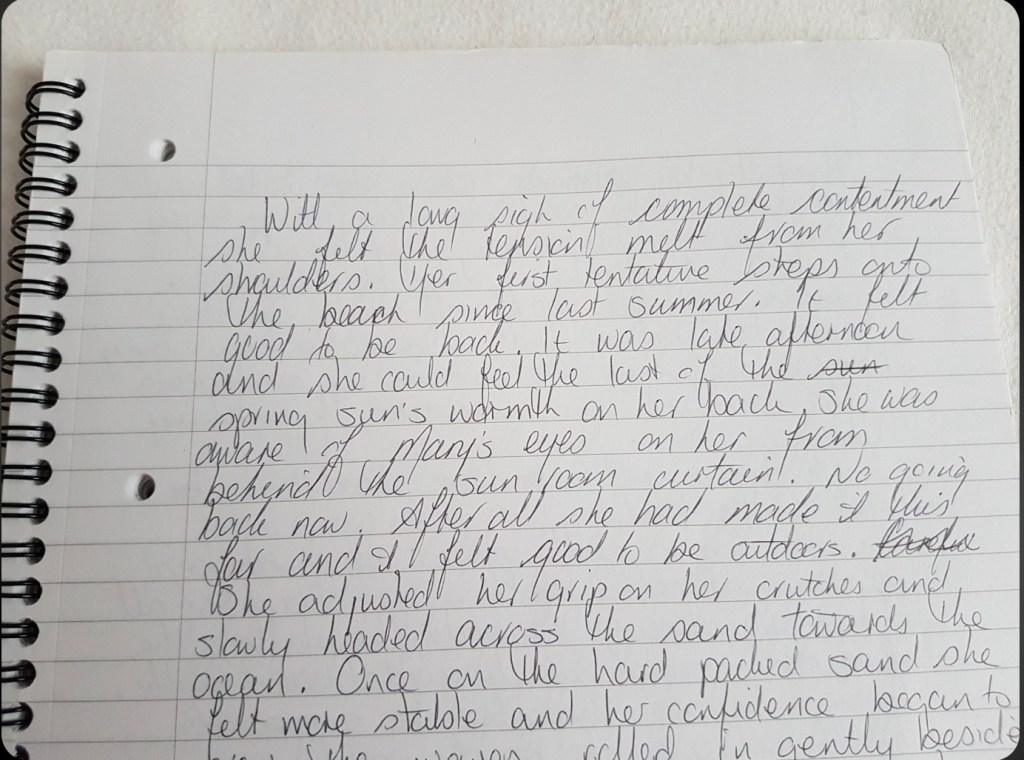 With a long sigh of complete contentment
she felt the tension melt from her
shoulders. Her first tentative steps onto
the beach since last summer. It felt
good to be back. It was late afternoon
and she could feel the last of the sun
spring sun's warmth on her back, she was
aware of Mary's eyes on her from
behind the sun room curtain. No going
back now. After all she had made it this
far and it felt good to be outdoors.
She adjusted her grip on her crutches and
slowly headed across the sand towards the
ocean. Once on the hard packed sand she
felt more stable and her confidence began to
the waves rolled in gently beside